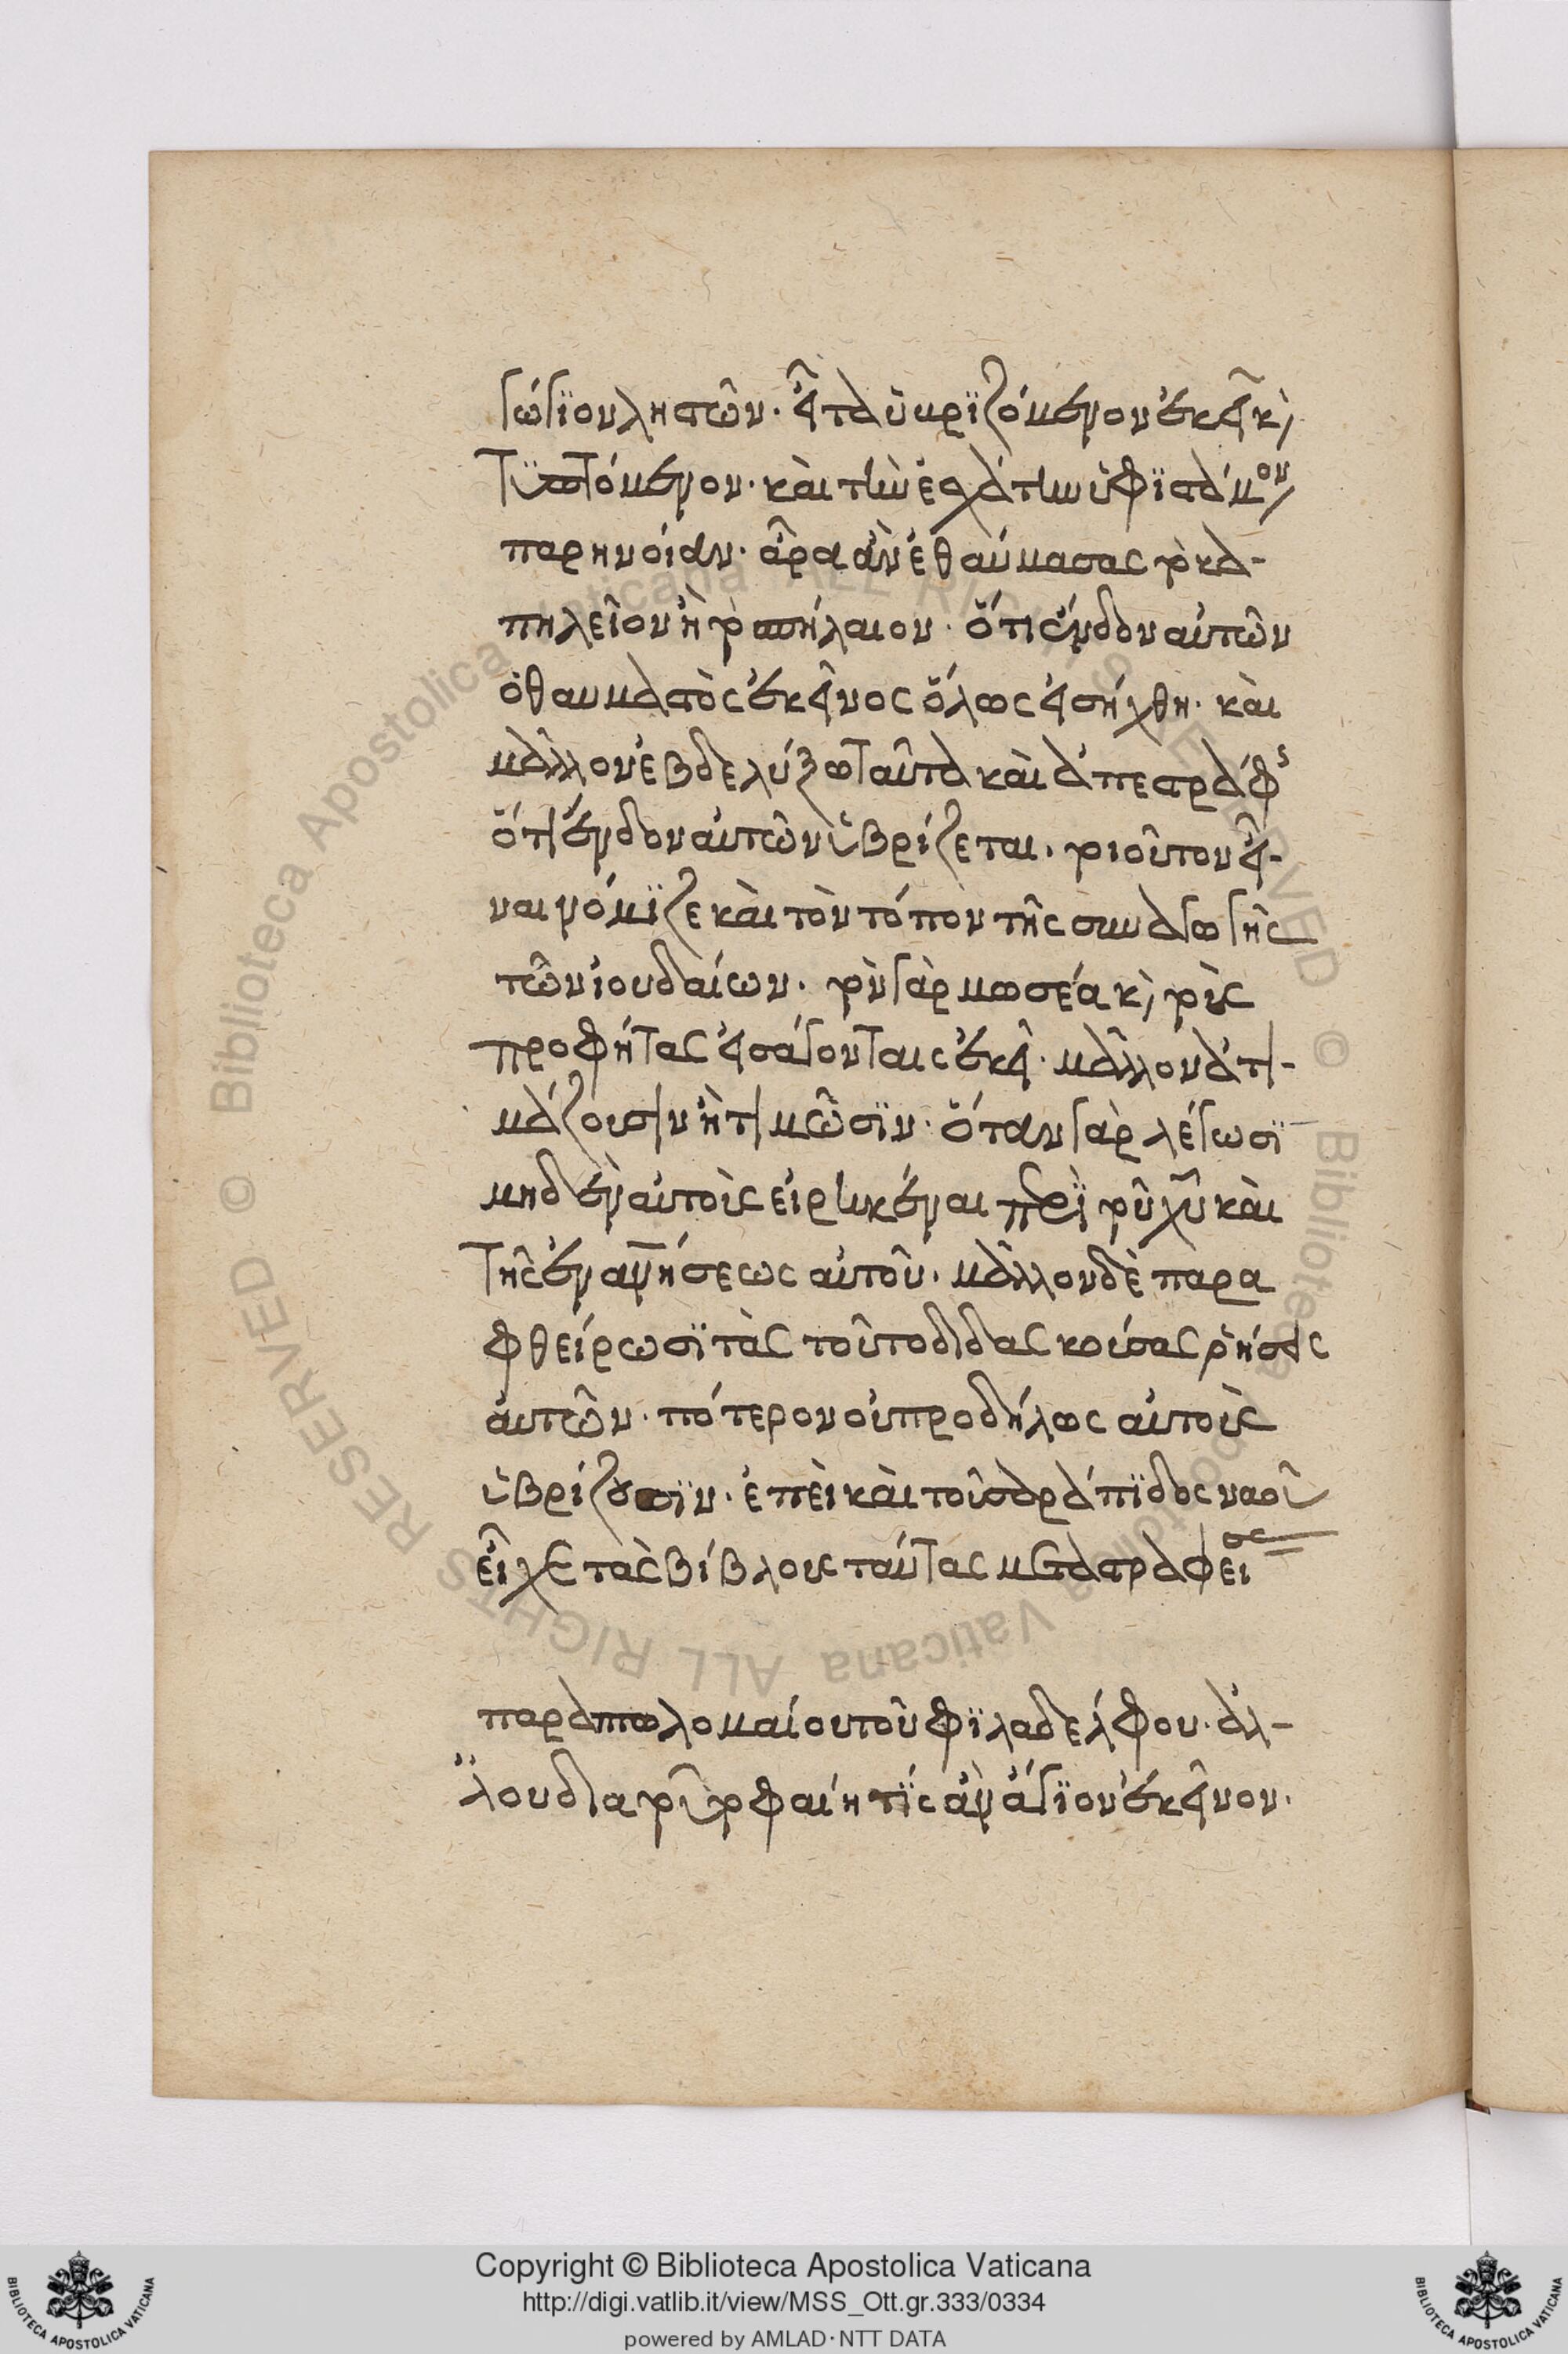 γώγιον ληστῶν. εἶτα ὑβριζόμενον ἐκεῖ κ(αὶ)
τυπτόμενον. καὶ τὴν ἐσχάτην ὑφιστάμ(εν)ον
παροινίαν. ἆρα ἂν ἐθαύμασας τὸ κα-
πηλεῖον ἢ τὸ σπήλαιον. ὅτι ἔνδον αὐτῶν
ὁ θαυμαστὸς ἐκεῖνος ὅλως εἰσήχθη. καὶ
μᾶλλον ἐβδελύξω ταῦτα καὶ ἀπεστράφης
ὅτι ἔνδον αὐτῶν ὑβρίζεται. τοιοῦτον εἶ-
ναι νόμιζε καὶ τὸν τόπον τῆς συναγωγῆς
τῶν ἰουδαίων. τὸν γὰρ μωσέα κ(αὶ) τοὺς
προφήτας εἰσάγονται ἐκεῖ. μᾶλλον ἀτι-
μάζουσιν ἢ τιμῶσιν. ὅταν γὰρ λέγωσι
μηδὲν αὐτοὺς εἰρηκέναι περὶ τοῦ χυ καὶ
τῆς ἐναννήσεως αὐτοῦ. μᾶλλον δὲ παρα
φθείρωσι τὰς τοῦτο διδασκούσας ῥήσεις
αὐτῶν. πότερον οὐ προδήλως αὐτοὺς
ὑβρίζουσιν. ἐπεὶ καὶ τοῦ σαράπιδος ναὸς
εἶχε τὰς βίβλους ταύτας μεταστραφείσας
παρὰ πτολομαίου τοῦ φιλαδέλφου. ἀλ-
λ' οὐ διὰ τοῦτο φαίη τις ἂν ἅγιον ἐκεῖνον.
Copyright © Biblioteca Apostolica Vaticana
http://digi.vatlib.it/view/MSS_Ott.gr.333/0334
powered by AMLAD·NTT DATA